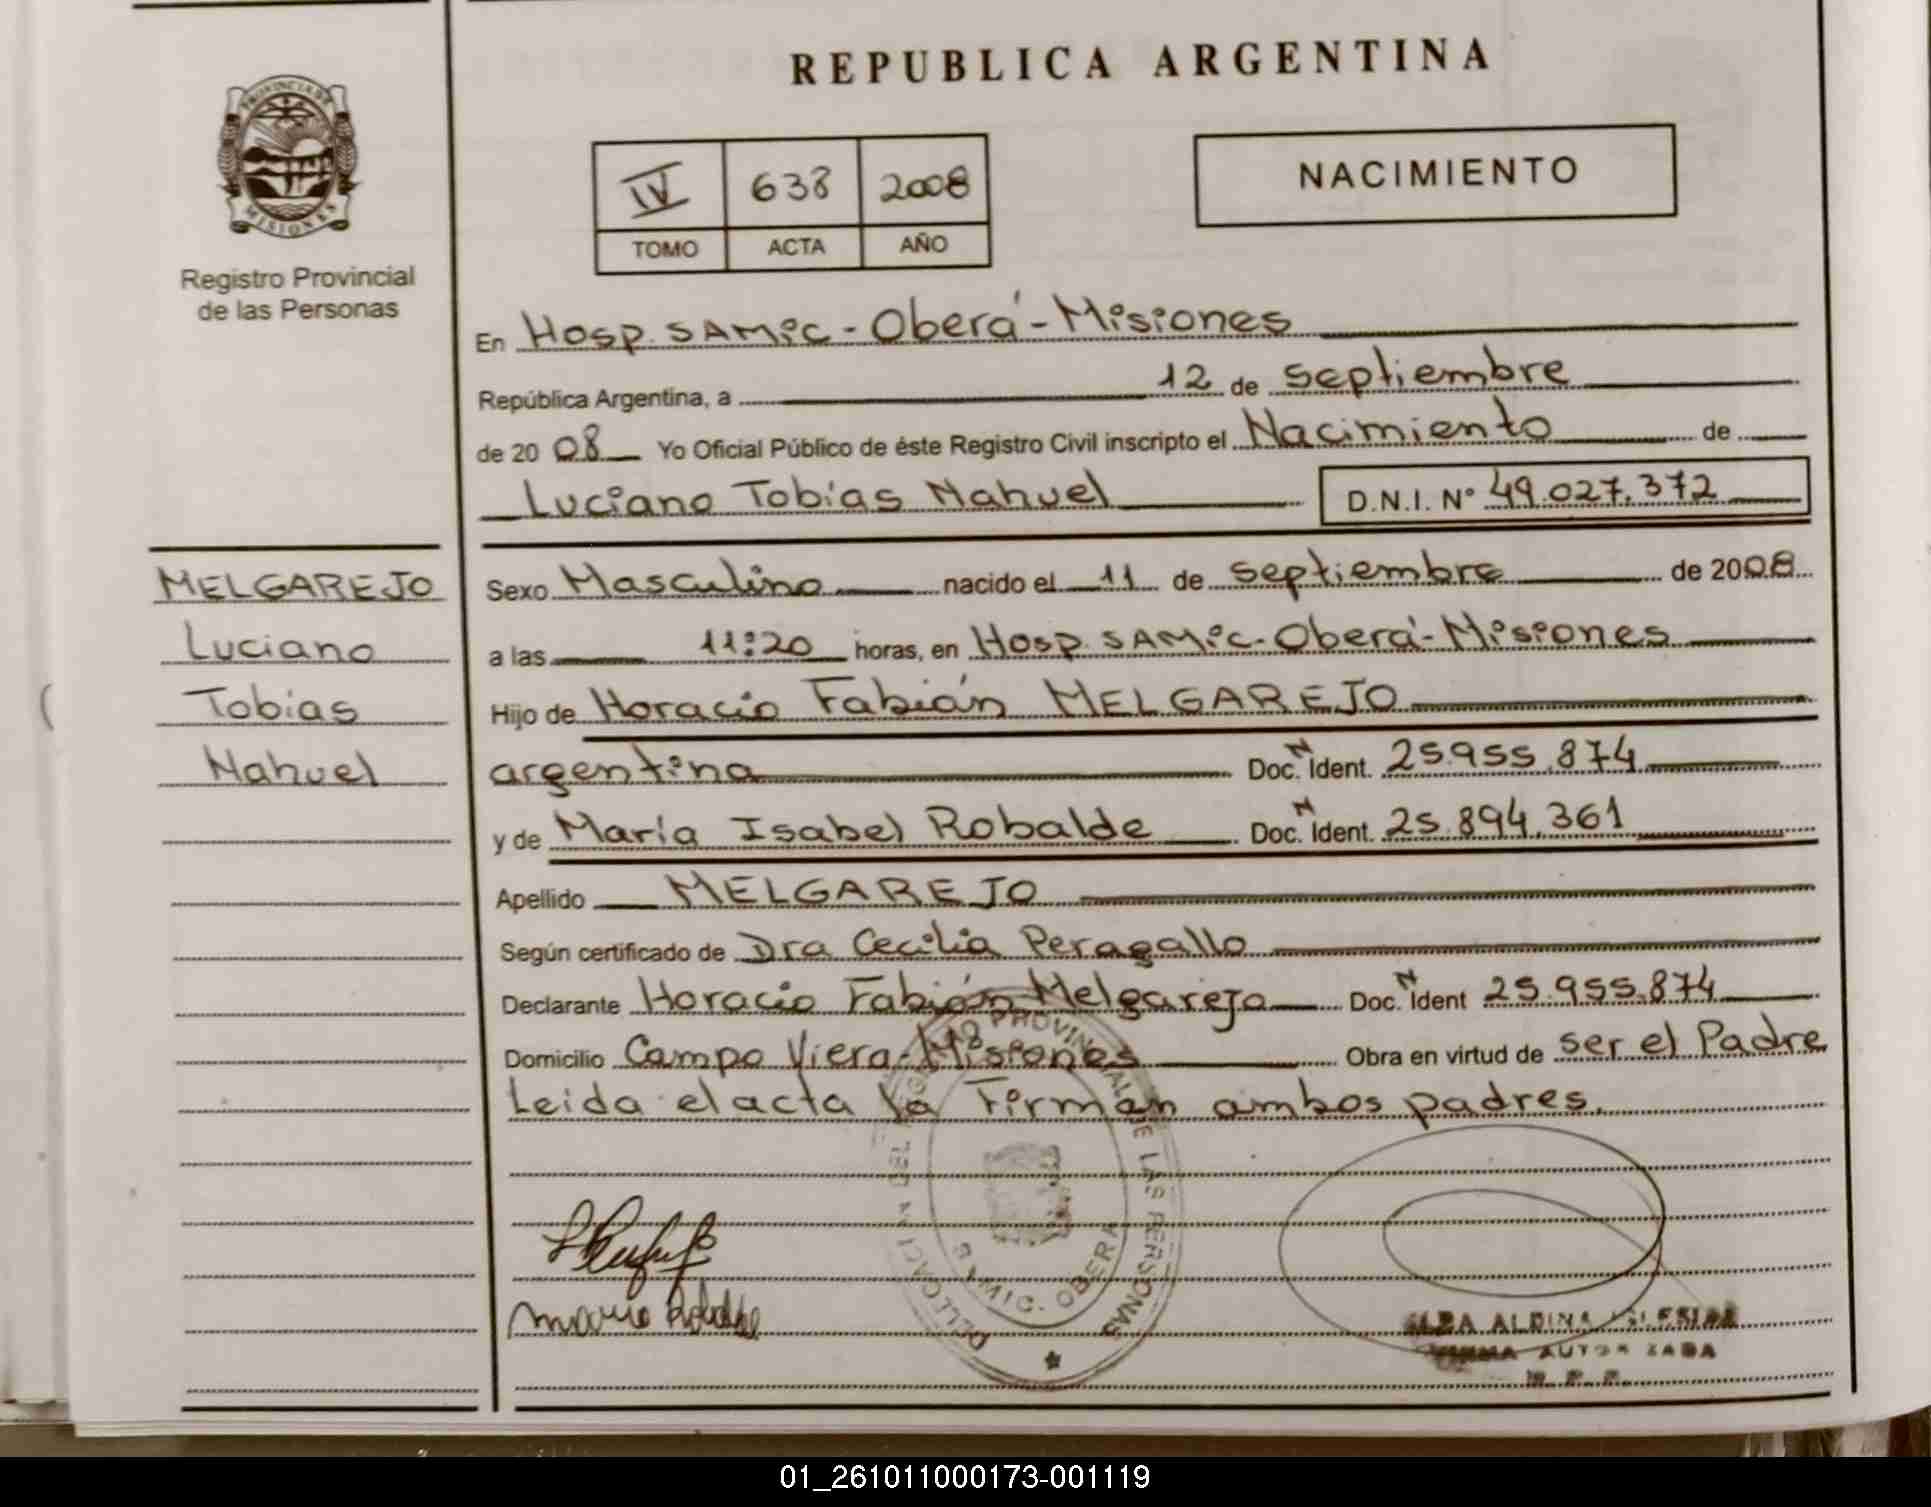 REPUBLICA ARGENTINA
PROVINCIA DE
MISIONES
Registro Provincial
de las Personas
IV 638 2008
TOMO ACTA AÑO
NACIMIENTO
En Hosp. SAMic - Oberá - Misiones
República Argentina, a 12 de septiembre
de 2008 Yo Oficial Público de éste Registro Civil inscripto el Nacimiento de
Luciano Tobías Nahuel D.N.I. N° 49.027.372
MELGAREJO
Luciano
Tobías
Nahuel
Sexo Masculino nacido el 11 de septiembre de 2008
a las 11:20 horas, en Hosp. SAMic - Oberá - Misiones
Hijo de Horacio Fabián MELGAREJO
argentina Doc. N Ident. 25.955.874
y de María Isabel Robalde Doc. N Ident. 25.894.361
Apellido MELGAREJO
Según certificado de Dra Cecilia Peragallo
Declarante Horacio Fabián Melgarejo Doc. N Ident 25.955.874
Domicilio Campo Viera - Misiones Obra en virtud de ser el Padre
Leida el acta la Firman ambos padres.
PROVINCIAL DE LAS PERSONAS
SAMIC. OBERA
ALBA ALDINA IGLESIAS
FIRMA AUTORIZADA
01_261011000173-001119